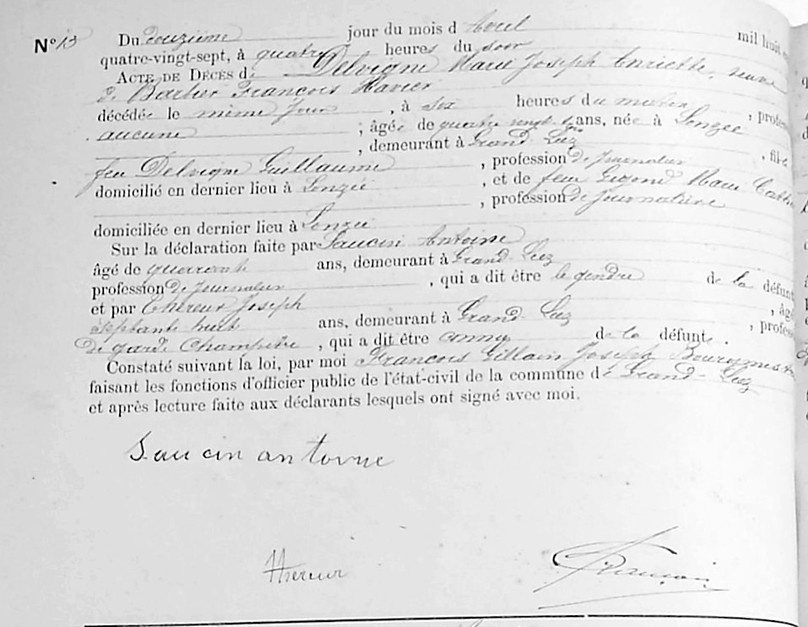 N° 13
Du douzième jour du mois d'Avril mil huit
quatre-vingt-sept, à quatre heures du soir
ACTE DE DÉCÈS de Delvigne Marie Joseph Enriette, veuve
de Barbier François Xavier
décédée le même jour, à six heures du matin, profession
aucune; âgée de quatre vingt ans, née à Lonzée
, demeurant à Grand-Leez, fille
feu Delvigne Guillaume, profession de Journalier
domicilié en dernier lieu à Lonzée, et de feue Marie
, profession de Journalière
domiciliée en dernier lieu à Lonzée
Sur la déclaration faite par Saucin Antoine
âgé de quarante ans, demeurant à Grand-Leez
profession de Journalier, qui a dit être le gendre de la défunte
et par Thereur Joseph, âgé
septante huit ans, demeurant à Grand-Leez, profession
de garde Champêtre, qui a dit être de la défunte.
Constaté suivant la loi, par moi François Gillain Joseph Bourgmestre
faisant les fonctions d'officier public de l'état-civil de la commune de Grand-Leez
et après lecture faite aux déclarants lesquels ont signé avec moi.
Saucin antoine